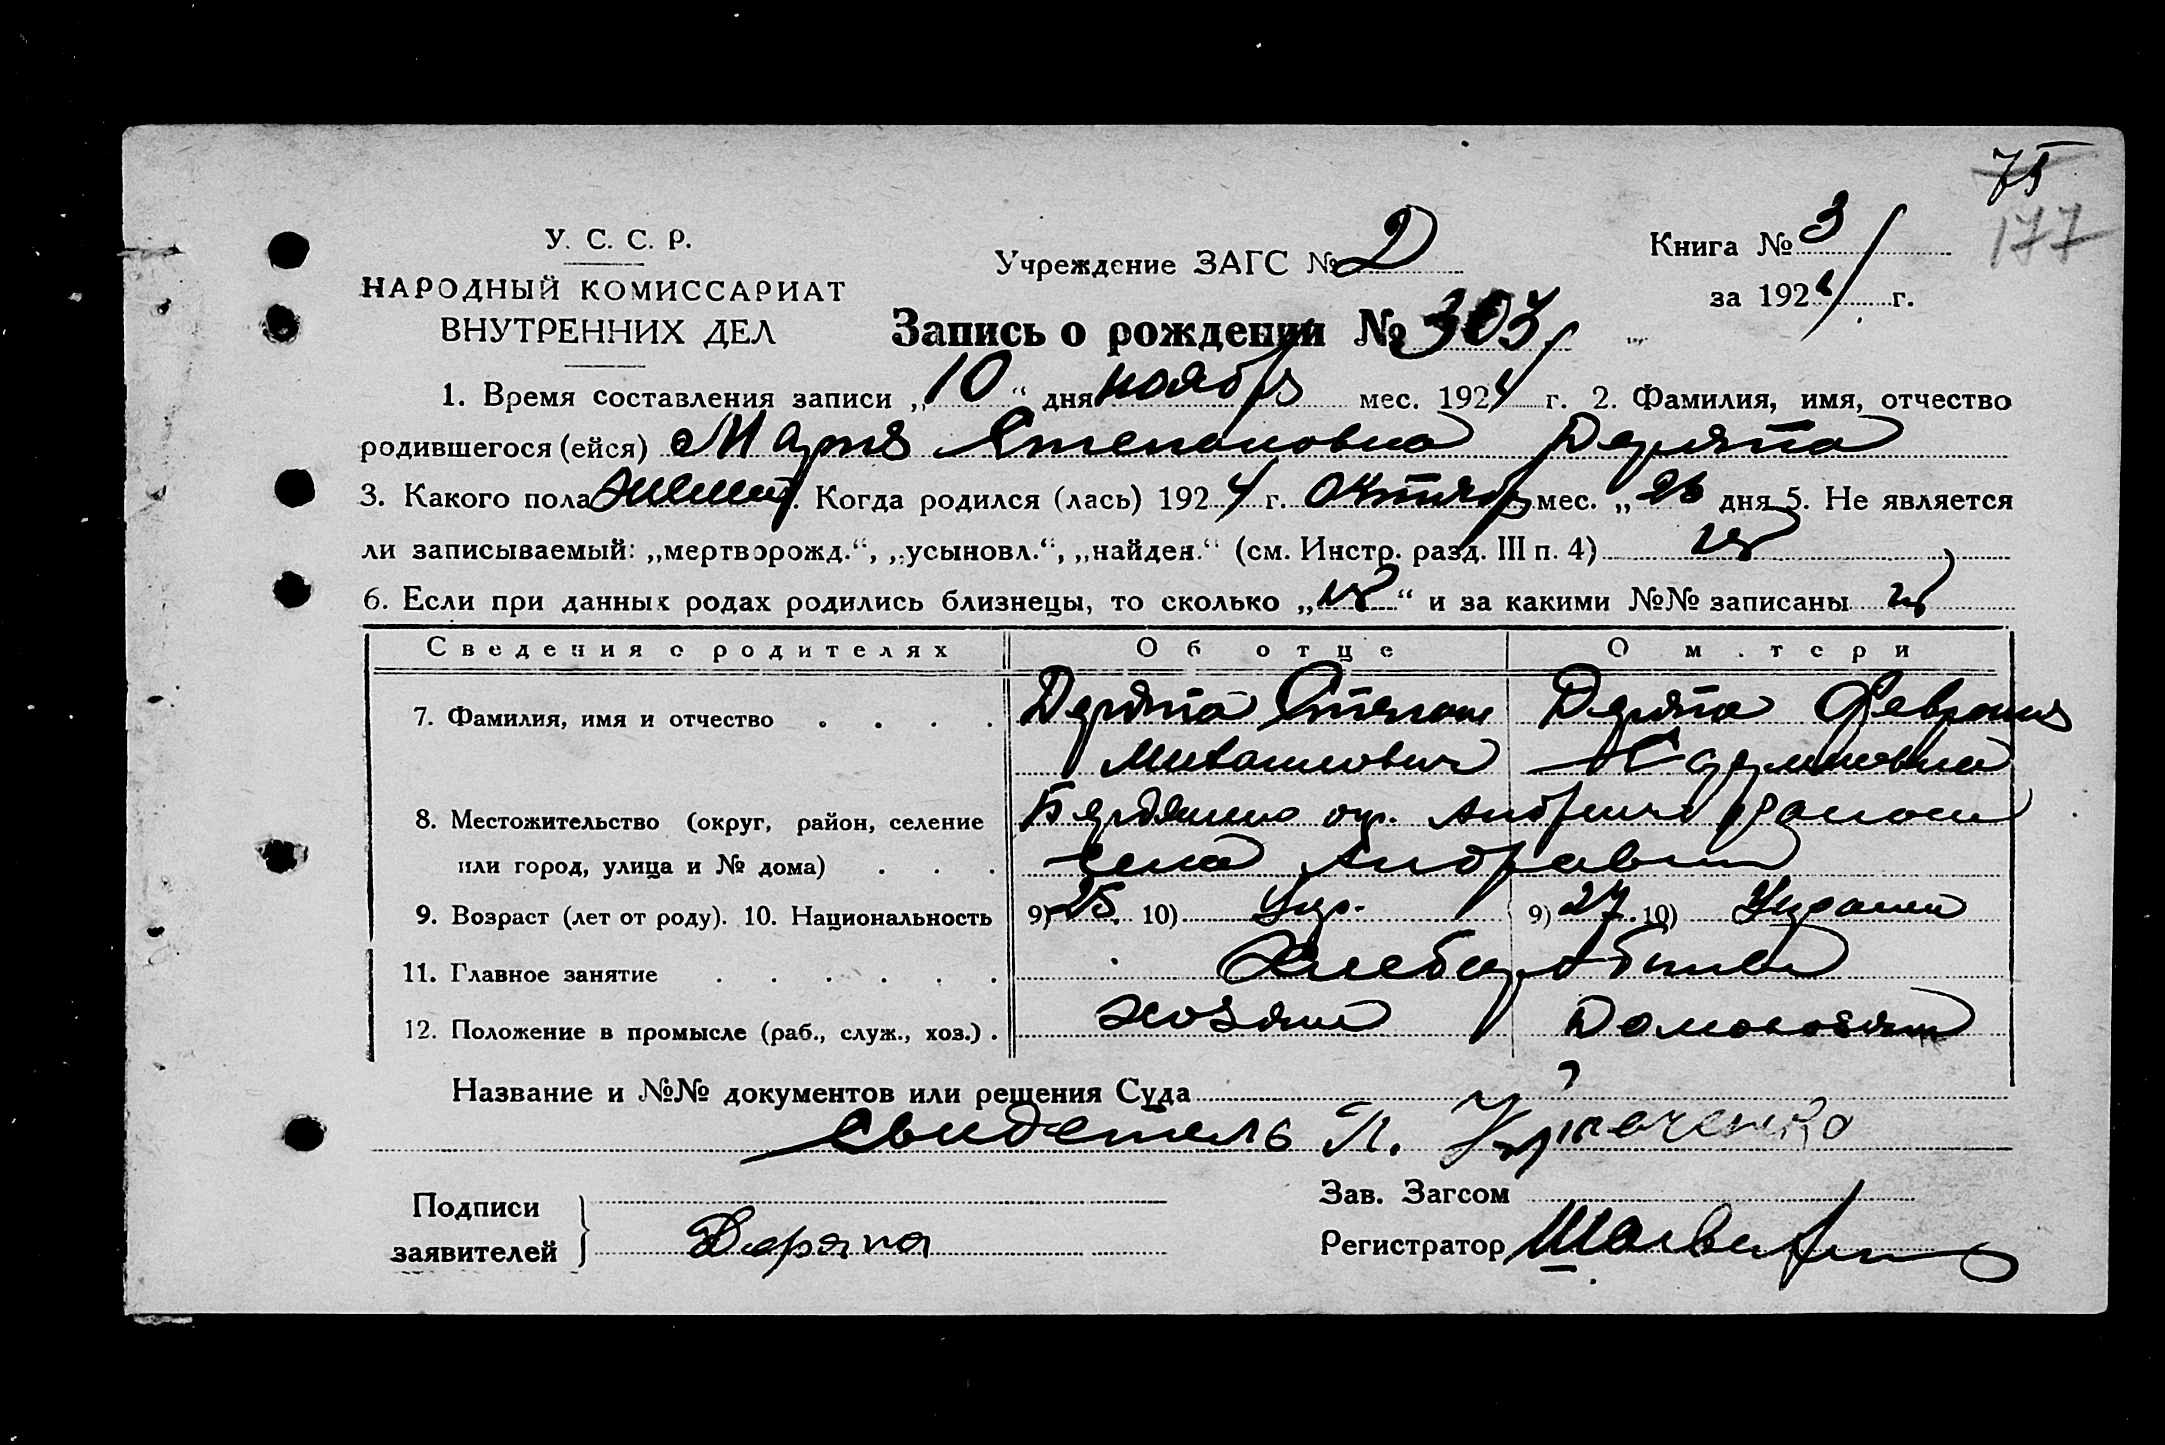 75
177
У. С. С. Р.
НАРОДНЫЙ КОМИССАРИАТ
ВНУТРЕННИХ ДЕЛ
Учреждение ЗАГС № 2
Книга № 3
за 1924 г.
Запись о рождении № 303
1. Время составления записи „10“ дня ноября мес. 1924 г. 2. Фамилия, имя, отчество
родившегося (ейся) Мария Степановна
3. Какого пола женск. Когда родился (лась) 1924 г. октябр мес. „26 дня 5. Не является
ли записываемый: „мертворожд.“, „усыновл.“, „найден.“ (см. Инстр. разд. III п. 4)
6. Если при данных родах родились близнецы, то сколько „ “ и за какими №№ записаны
Сведения о родителях Об отце О матери
7. Фамилия, имя и отчество . . . . Степан
8. Местожительство (округ, район, селение Бердянско окр.
или город, улица и № дома) . . . села
9. Возраст (лет от роду). 10. Национальность 9) 25. 10) Укр. 9) 27. 10) Украин
11. Главное занятие . . . . . .
12. Положение в промысле (раб., служ., хоз.) . хозяин Домохозяин
Название и №№ документов или решения Суда
свидетель П.
Подписи
заявителей } Деряпа
Зав. Загсом
Регистратор